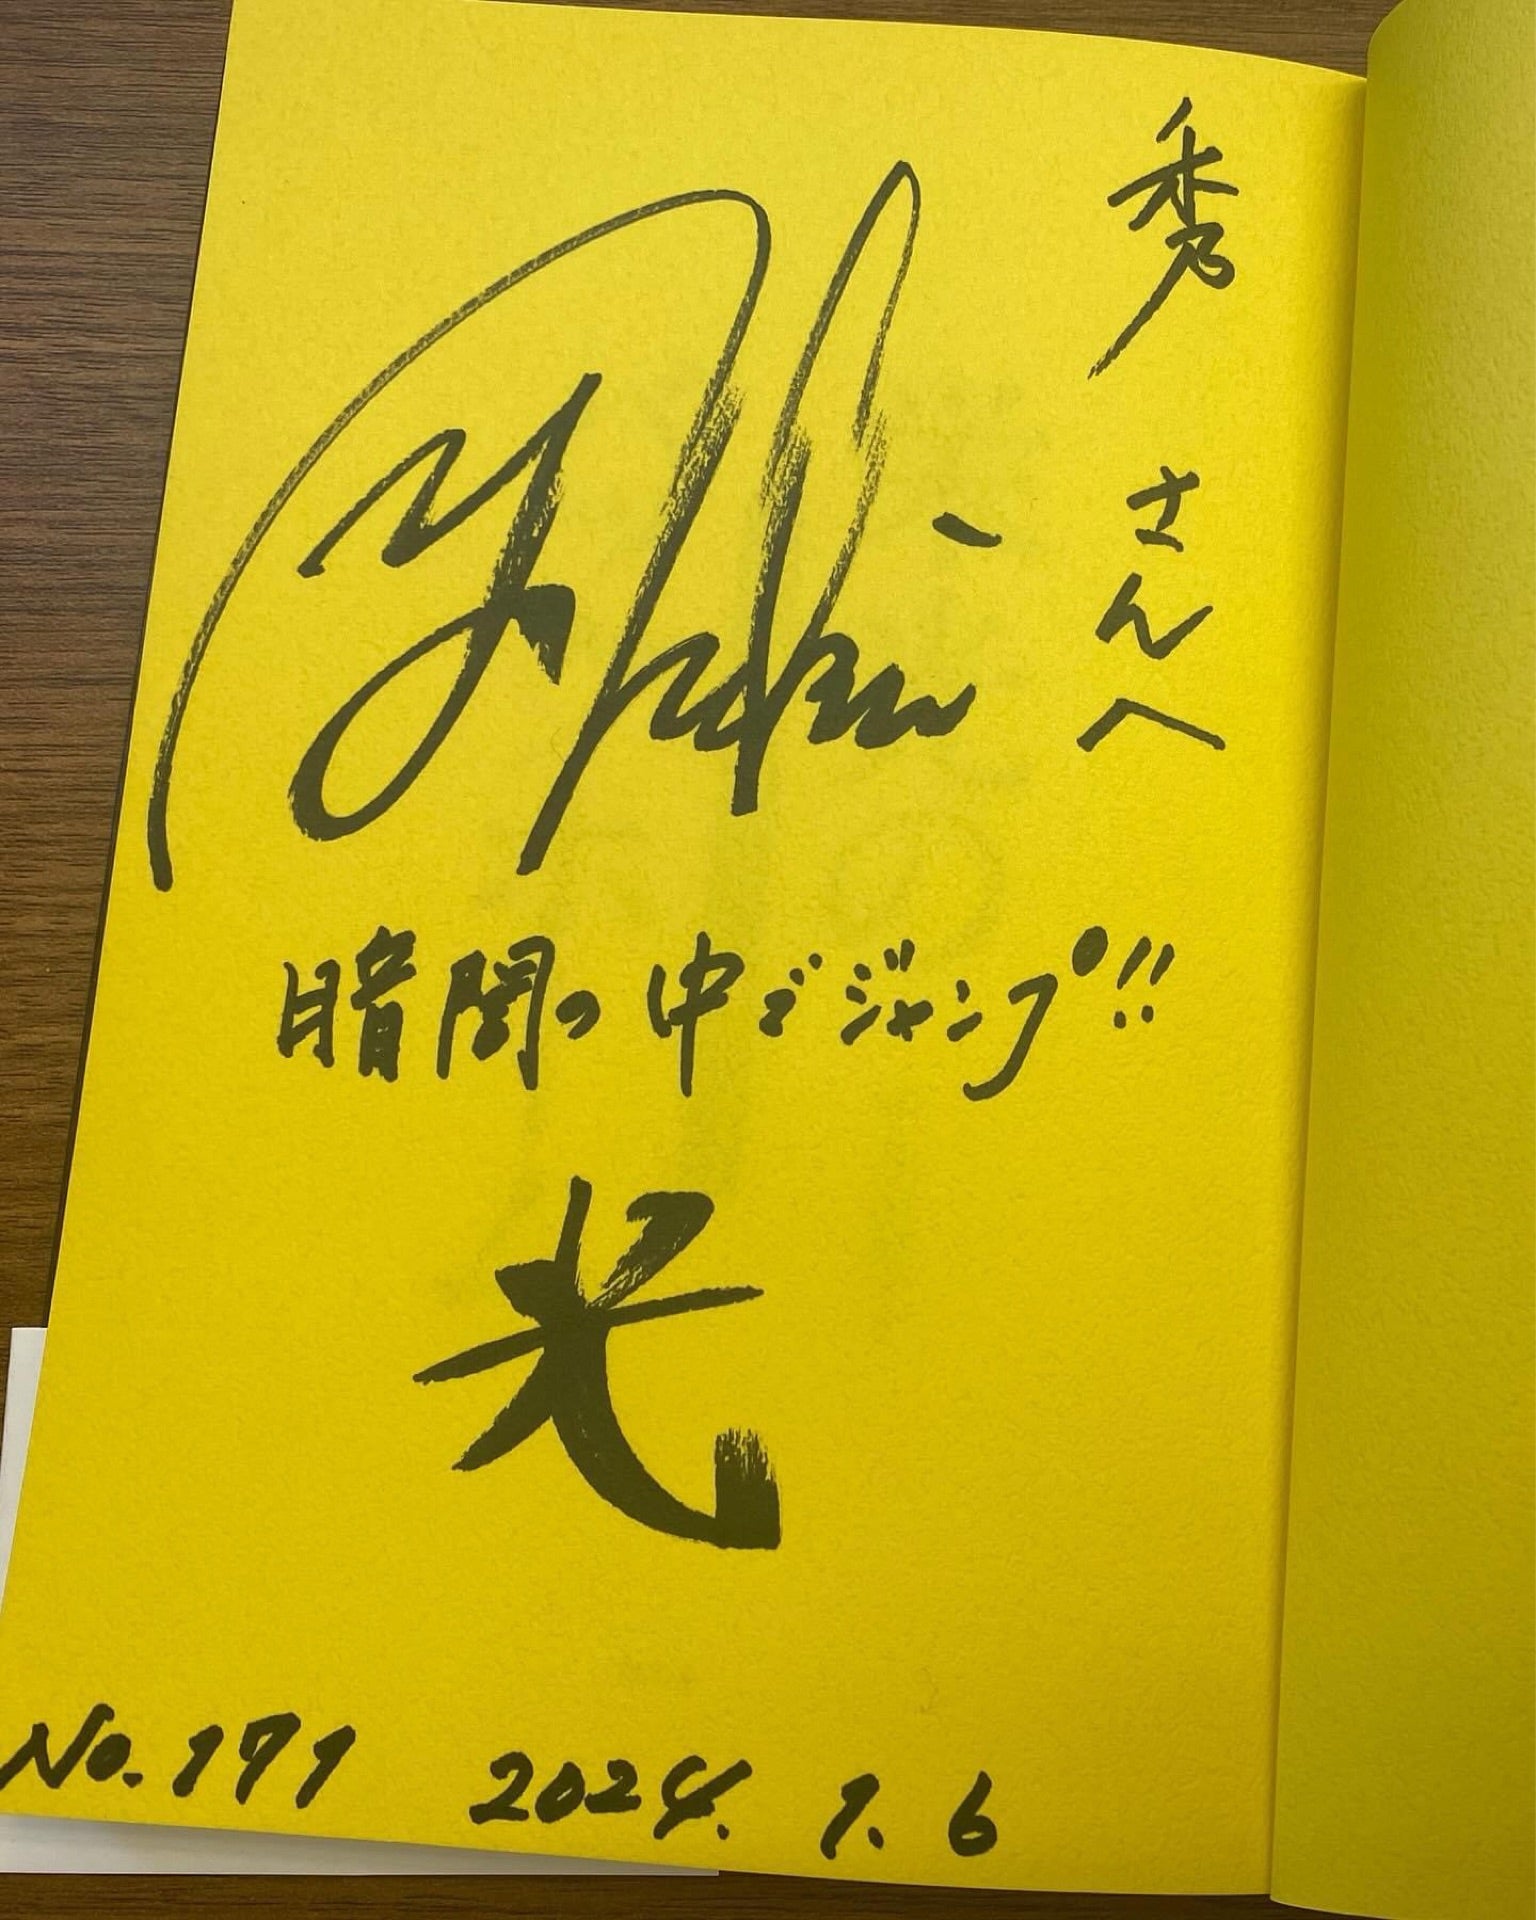 秀さんへ
暗闇の中でジャンプ!!
光
No.171 2024.1.6